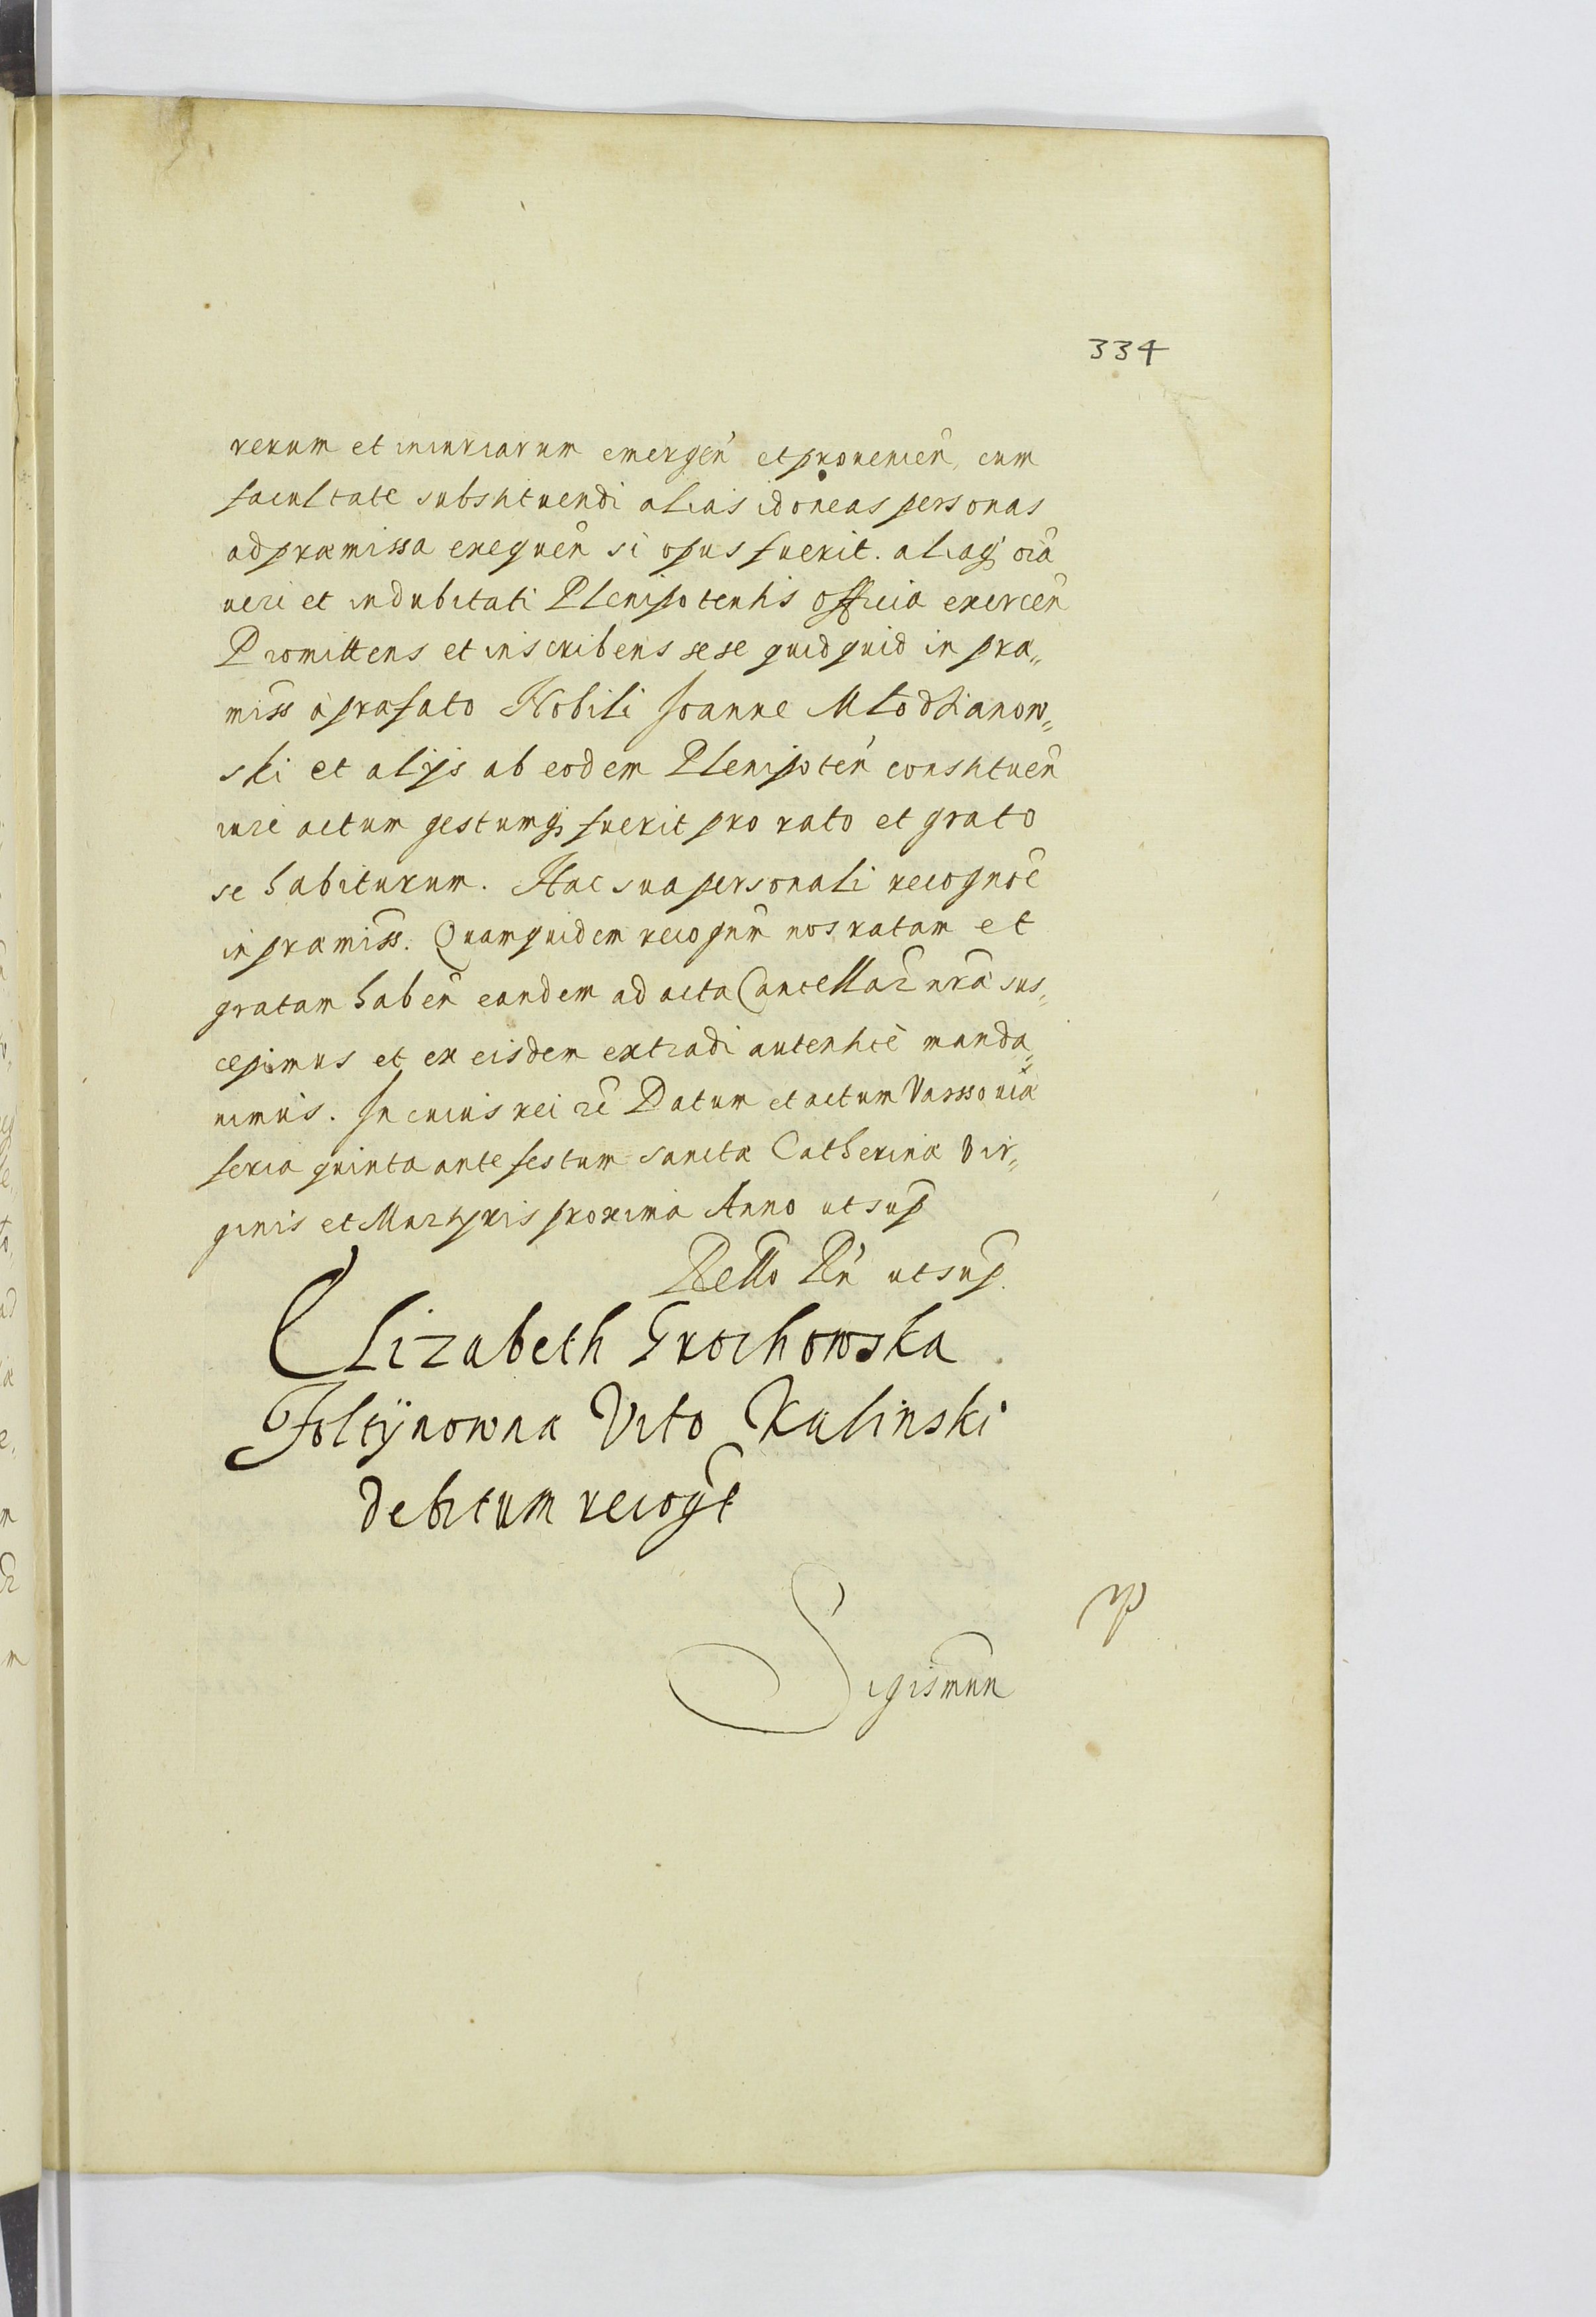 334
rerum et iniuriarum emergen̄ et prouenien̄, cum
facultate substituendi alias idoneas personas
ad præmissa exequen̄ si opus fuerit. aliaq; oīa
ueri et indubitati Plenipotentis officia exercen̄
Promittens et inscribens sese quidquid in præ„
miss̄ à præfato Nobili Joanne Młodzianow„
ski et alijs ab eodem Plenipoten̄ constituen̄
iure actum gestumq; fuerit pro rato et grato
se habiturum. Hac sua personali recognōe
in præmiss̄. Quamquidem recognm̄ nos ratam et
gratam haben̄ eandem ad acta Cancellar̄ nrā sus„
cepimus et ex eisdem extradi autenticè manda„
uimus. In cuius rei r̄e Datum et actum Varssouiæ
feria quinta ante festum sanctæ Catherinæ Vir„
ginis et Martyris proxima Anno ut sup̄
Relło R̄n ut sup̄.
Elizabeth Grochowska
Foltÿnowna Vito Kalinski
debitum recoḡt
Sigismun̄